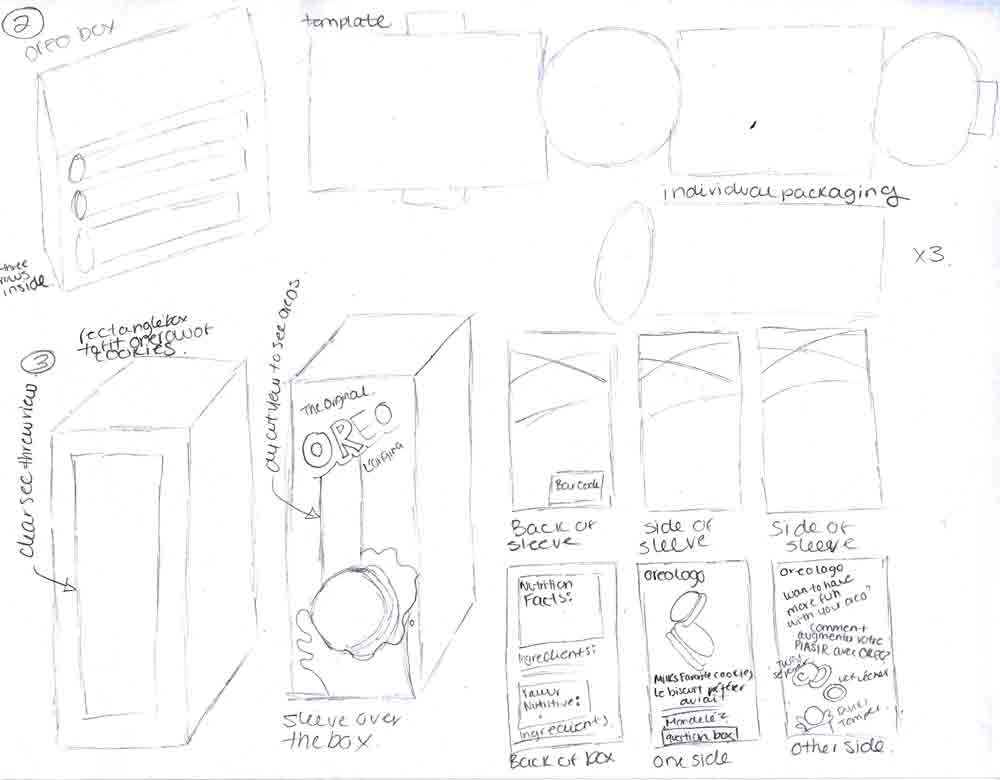 2
oreo box
three
rows
inside.
template
individual packaging
x3.
3
rectangle box
to fit one row of
cookies.
clear see threw view.
cut view to see oreos
The Original
OREO
sleeve over
the box.
Barcode
Back of
sleeve
side of
sleeve
Side of
sleeve
Nutrition
Facts:
Ingredients:
Valeur
Nutritive:
Ingredients
Back of box
oreo logo
Milk's Favorite cookies,
le biscuit préférer
du lait
Mondelēz
question box
one side
oreo logo
want to have
more fun
with your oreo?
comment
augmenter votre
PlASIR avec OREO?
Twist
Dunk/
Tamper
other side.